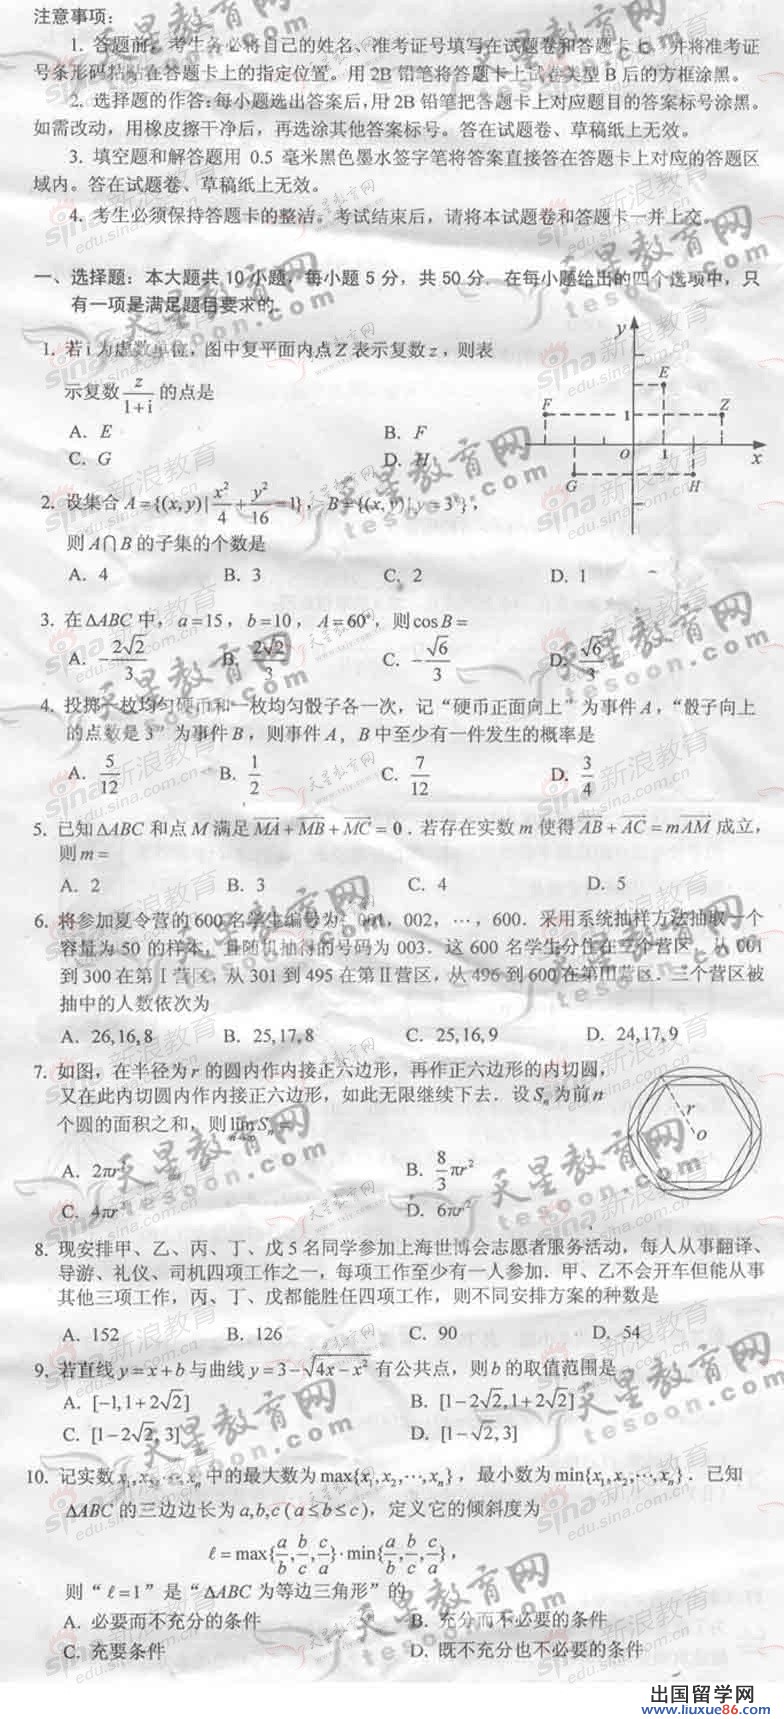 注意事项：
1. 答题前，考生务必将自己的姓名、准考证号填写在试题卷和答题卡上，并将准考证
号条形码粘贴在答题卡上的指定位置。用2B铅笔将答题卡上试卷类型B后的方框涂黑。
2. 选择题的作答：每小题选出答案后，用2B铅笔把答题卡上对应题目的答案标号涂黑。
如需改动，用橡皮擦干净后，再选涂其他答案标号。答在试题卷、草稿纸上无效。
3. 填空题和解答题用 0.5 毫米黑色墨水签字笔将答案直接答在答题卡上对应的答题区
域内。答在试题卷、草稿纸上无效。
4. 考生必须保持答题卡的整洁。考试结束后，请将本试题卷和答题卡一并上交。
一、选择题：本大题共 10 小题，每小题 5 分，共 50 分．在每小题给出的四个选项中，只
有一项是满足题目要求的．
1. 若 i 为虚数单位，图中复平面内点 Z 表示复数 z，则表
示复数 z/(1+i) 的点是
A．E B．F
C．G D．H
y E F 1 Z O 1 x G H
2. 设集合 A={(x,y)|x²/4+y²/16=1}，B={(x,y)|y=3ˣ}，
则 A∩B 的子集的个数是
A．4 B．3 C．2 D．1
3. 在 ΔABC 中，a=15，b=10，A=60°，则 cos B=
A．-2√2/3 B．2√2/3 C．-√6/3 D．√6/3
4. 投掷一枚均匀硬币和一枚均匀骰子各一次，记“硬币正面向上”为事件 A，“骰子向上
的点数是 3”为事件 B，则事件 A，B 中至少有一件发生的概率是
A．5/12 B．1/2 C．7/12 D．3/4
5. 已知 ΔABC 和点 M 满足 MA+MB+MC=0．若存在实数 m 使得 AB+AC=mAM 成立，
则 m=
A．2 B．3 C．4 D．5
6. 将参加夏令营的 600 名学生编号为：001，002，…，600．采用系统抽样方法抽取一个
容量为 50 的样本，且随机抽得的号码为 003．这 600 名学生分住在三个营区，从 001
到 300 在第Ⅰ营区，从 301 到 495 在第Ⅱ营区，从 496 到 600 在第Ⅲ营区．三个营区被
抽中的人数依次为
A．26,16,8 B．25,17,8 C．25,16,9 D．24,17,9
7. 如图，在半径为 r 的圆内作内接正六边形，再作正六边形的内切圆，
又在此内切圆内作内接正六边形，如此无限继续下去．设 Sₙ 为前 n
个圆的面积之和，则 lim Sₙ=
n→∞
A．2πr² B．8/3 πr²
C．4πr² D．6πr²
r O
8. 现安排甲、乙、丙、丁、戊 5 名同学参加上海世博会志愿者服务活动，每人从事翻译、
导游、礼仪、司机四项工作之一，每项工作至少有一人参加．甲、乙不会开车但能从事
其他三项工作，丙、丁、戊都能胜任四项工作，则不同安排方案的种数是
A．152 B．126 C．90 D．54
9. 若直线 y=x+b 与曲线 y=3-√(4x-x²) 有公共点，则 b 的取值范围是
A．[-1,1+2√2] B．[1-2√2,1+2√2]
C．[1-2√2,3] D．[1-√2,3]
10. 记实数 x₁,x₂,…,xₙ 中的最大数为 max{x₁,x₂,…,xₙ}，最小数为 min{x₁,x₂,…,xₙ}．已知
ΔABC 的三边边长为 a,b,c (a≤b≤c)，定义它的倾斜度为
ℓ=max{a/b,b/c,c/a}·min{a/b,b/c,c/a}，
则“ℓ=1”是“ΔABC 为等边三角形”的
A. 必要而不充分的条件 B. 充分而不必要的条件
C. 充要条件 D. 既不充分也不必要的条件
出国留学网
www.liuxue86.com